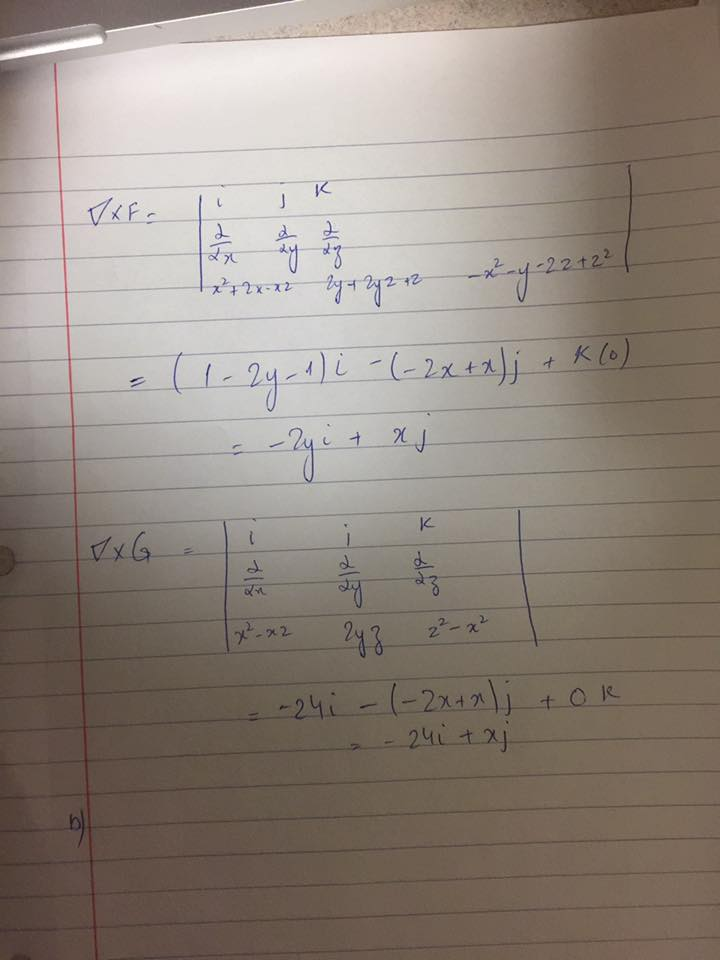 ∇×F = | i j k |
∂/∂x ∂/∂y ∂/∂z
x²+2x-xz 2y+2yz+z -x²-y-2z+z²
= (1-2y-1)i -(-2x+x)j + k(0)
= -2yi + xj
∇×G = | i j k |
∂/∂x ∂/∂y ∂/∂z
x²-xz 2yz z²-x²
= -2yi -(-2x+x)j + 0k
= -2yi + xj
b)